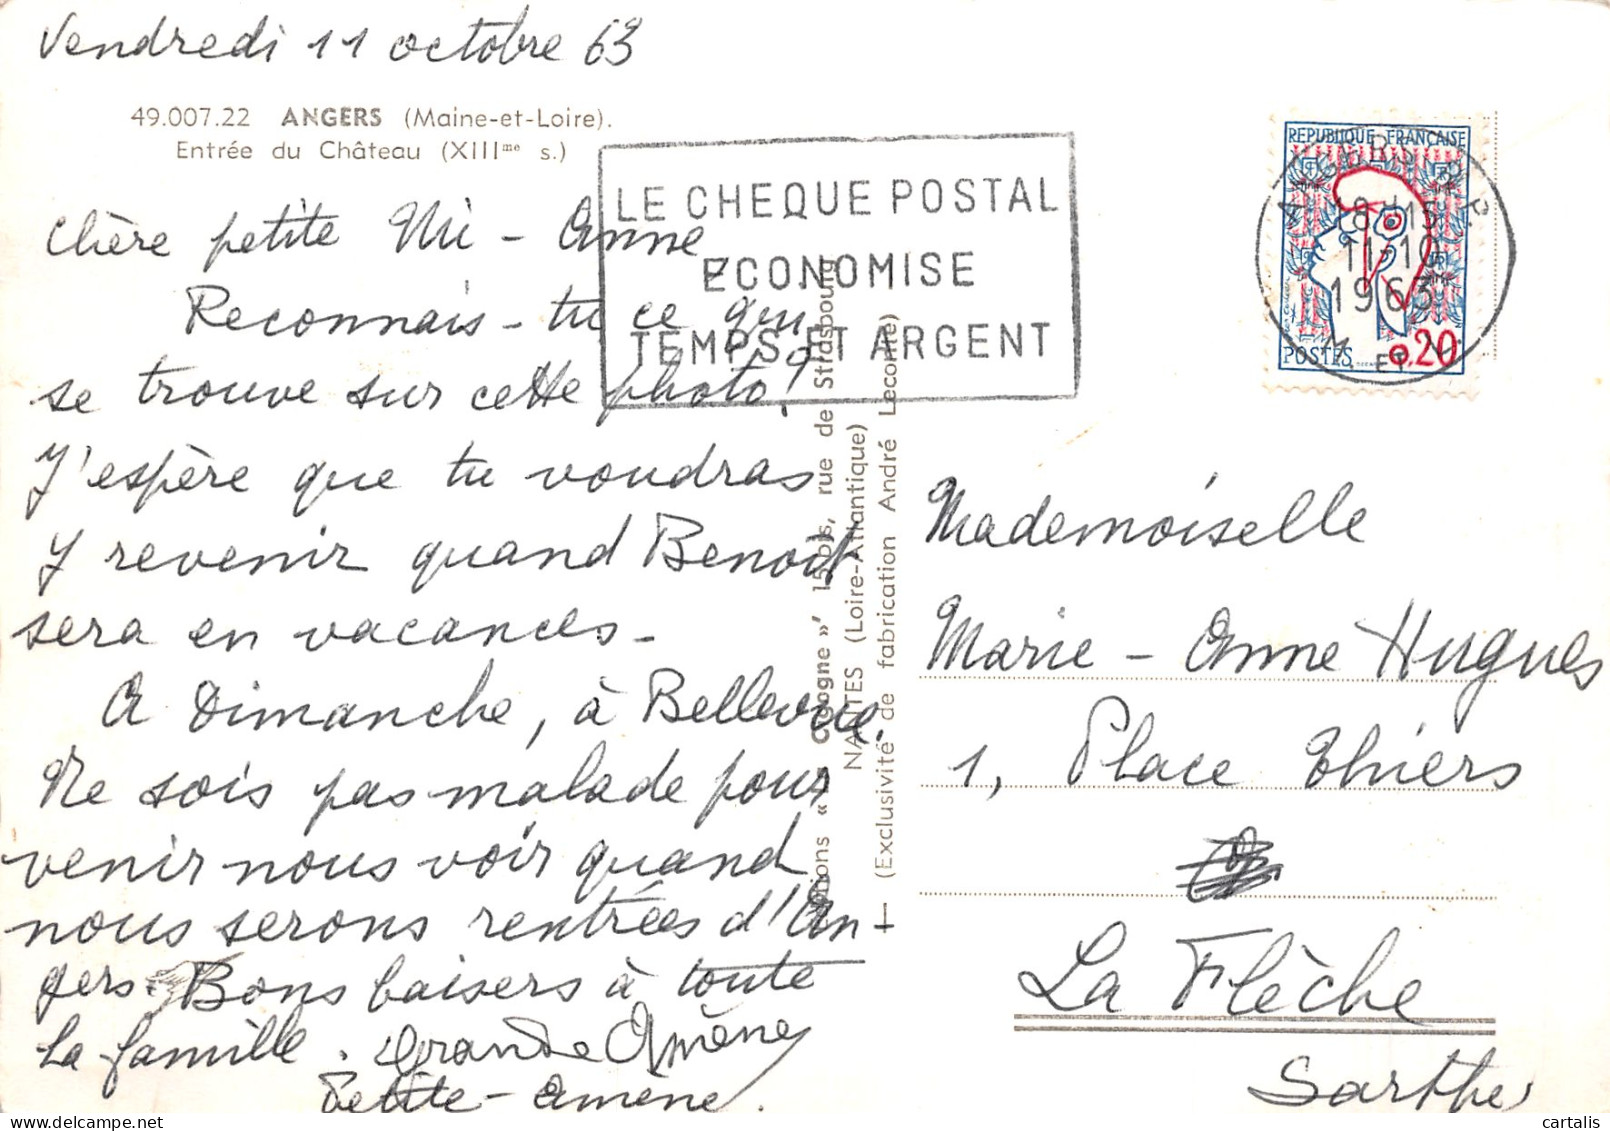 Vendredi 11 octobre 63
49.007.22 ANGERS (Maine-et-Loire).
Entrée du Château (XIIIme s.)
LE CHEQUE POSTAL
ECONOMISE
TEMPS ET ARGENT
REPUBLIQUE FRANÇAISE
18 H15
11-10
1963
M. ET L.
POSTES
0.20
Chère petite Mi-Anne,
Reconnais-tu ce qui
se trouve sur cette photo?
J'espère que tu voudras
y revenir quand Benoît
sera en vacances-
A Dimanche, à Bellevue.
Ne sois pas malade pour
venir nous voir quand
nous serons rentrées d'An
gers. Bons baisers à toute
la famille. Grande Amène
Petite-Amène.
Editions « Cigogne » 15 bis, rue de Strasbourg
NANTES (Loire-Atlantique)
(Exclusivité de fabrication André Lecomte)
Mademoiselle
Marie-Anne Hugues
1, Place Thiers
La Flèche
Sarthe
cartalis